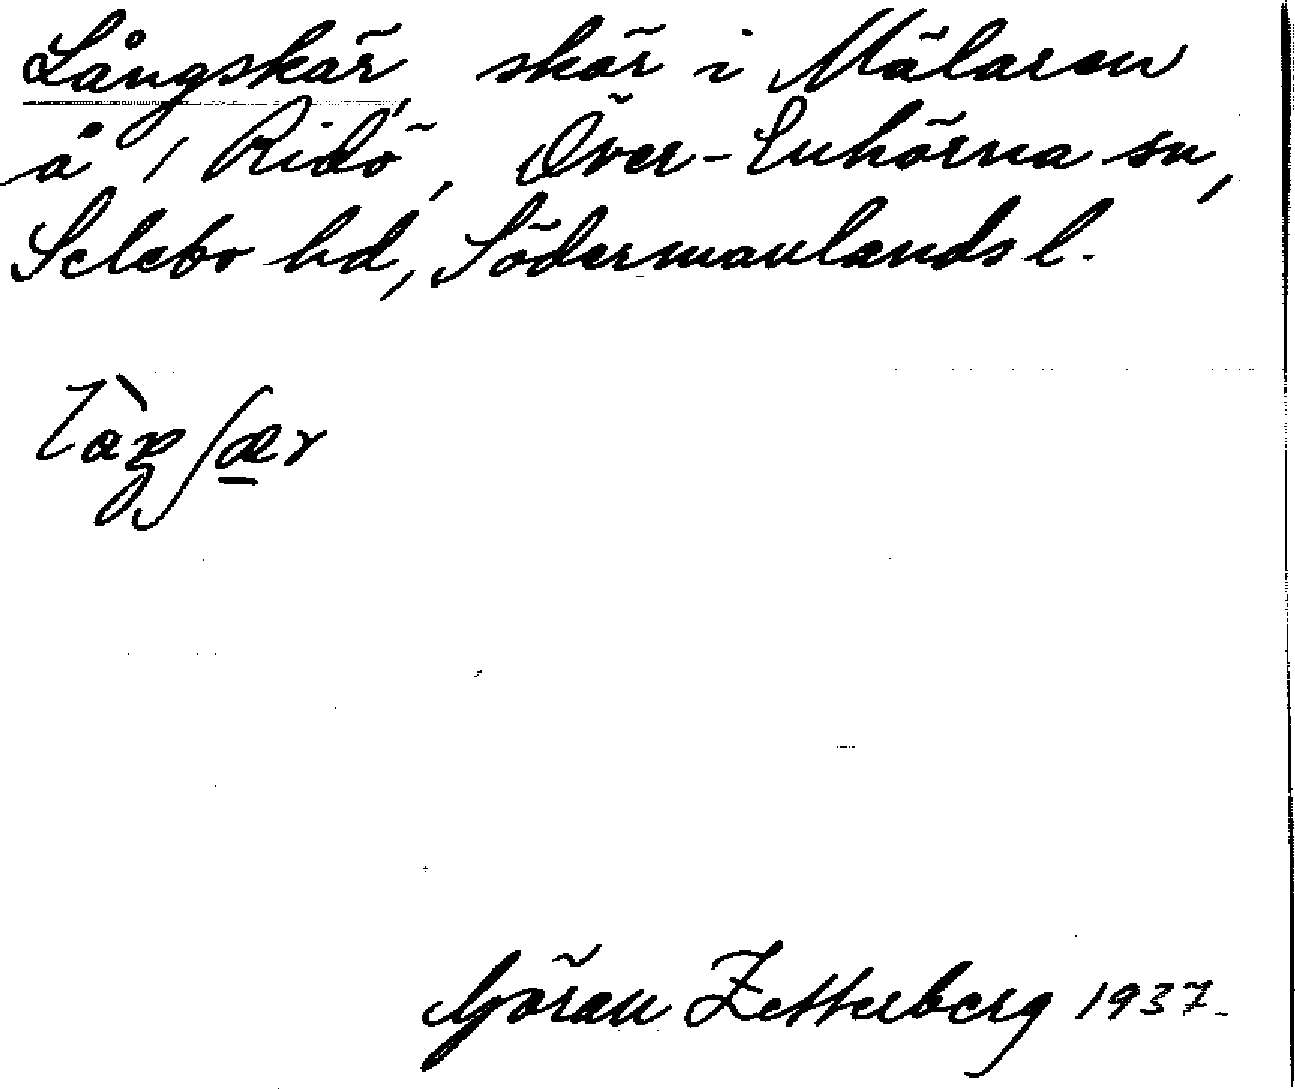 Långskär, skär i Mälaren
å 1 Ridö, Över-Enhörna sn,
Selebo hd, Södermanlands l.
Göran Zetterberg 1937.